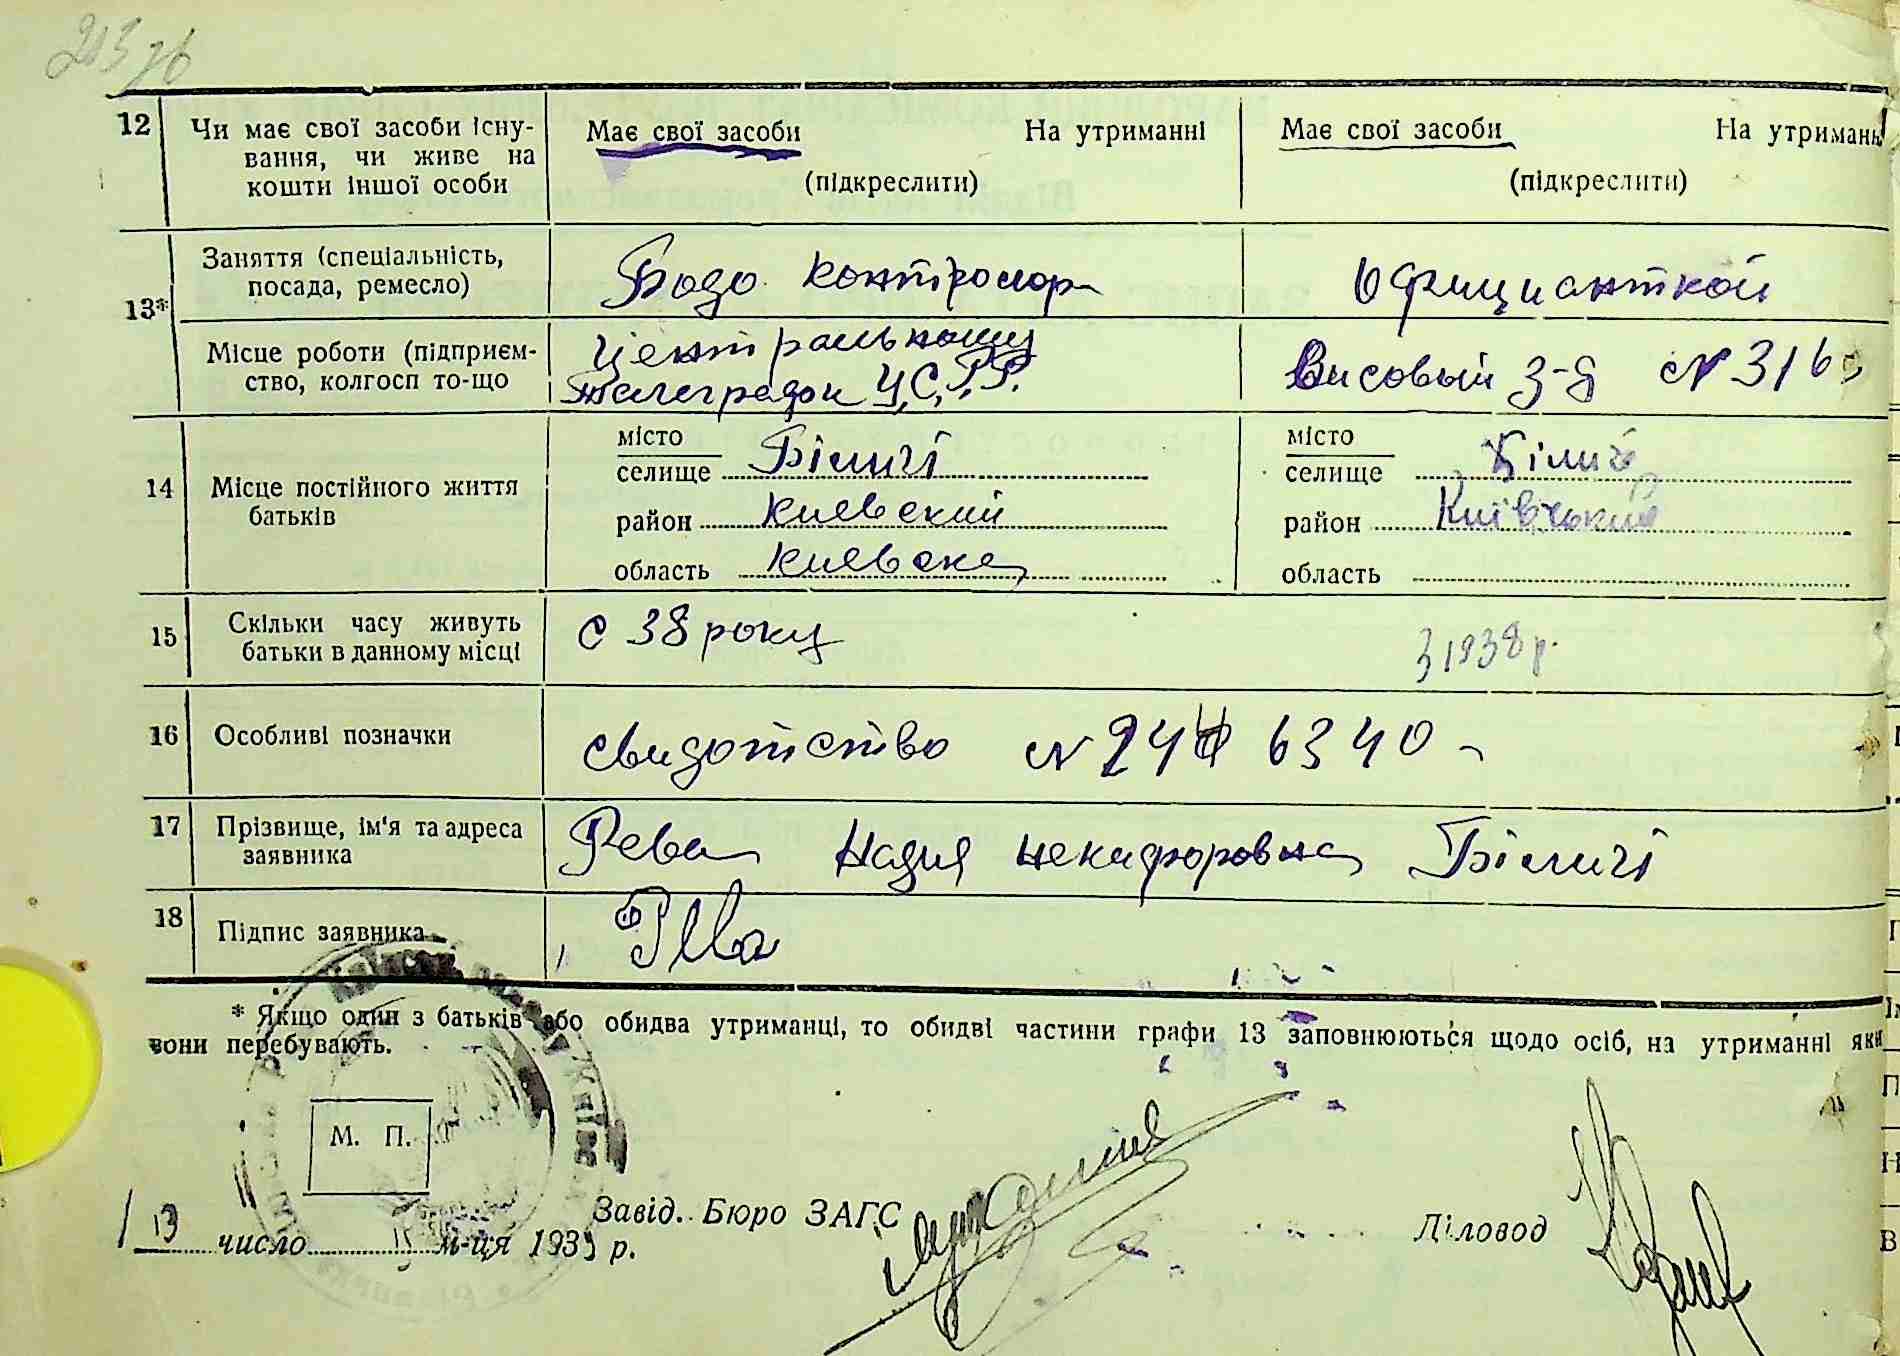 213 зв
12 Чи має свої засоби існу- Має свої засоби На утриманні Має свої засоби На утриманн
вання, чи живе на
кошти іншої особи (підкреслити) (підкреслити)
13* Заняття (спеціальність, Бодо контрольор Официанткой
посада, ремесло)
Місце роботи (підприєм- Центральному Висовый з-д № 316
ство, колгосп то-що телеграфок У.С.Р.Р.
14 Місце постійного життя місто Біличі місто Біличі
батьків селище селище
район Киевский район Київський
область Киевска область
15 Скільки часу живуть с 38 року з 1938 р.
батьки в данному місці
16 Особливі позначки свидотство № 24 6340
17 Прізвище, ім'я та адреса Рева Надия Некифоровна Біличі
заявника
18 Підпис заявника Рева
* Якщо один з батьків або обидва утриманці, то обидві частини графи 13 заповнюються щодо осіб, на утриманні яки
вони перебувають.
М. П.
Завід. Бюро ЗАГС Діловод
13 число м-ця 1939 р.